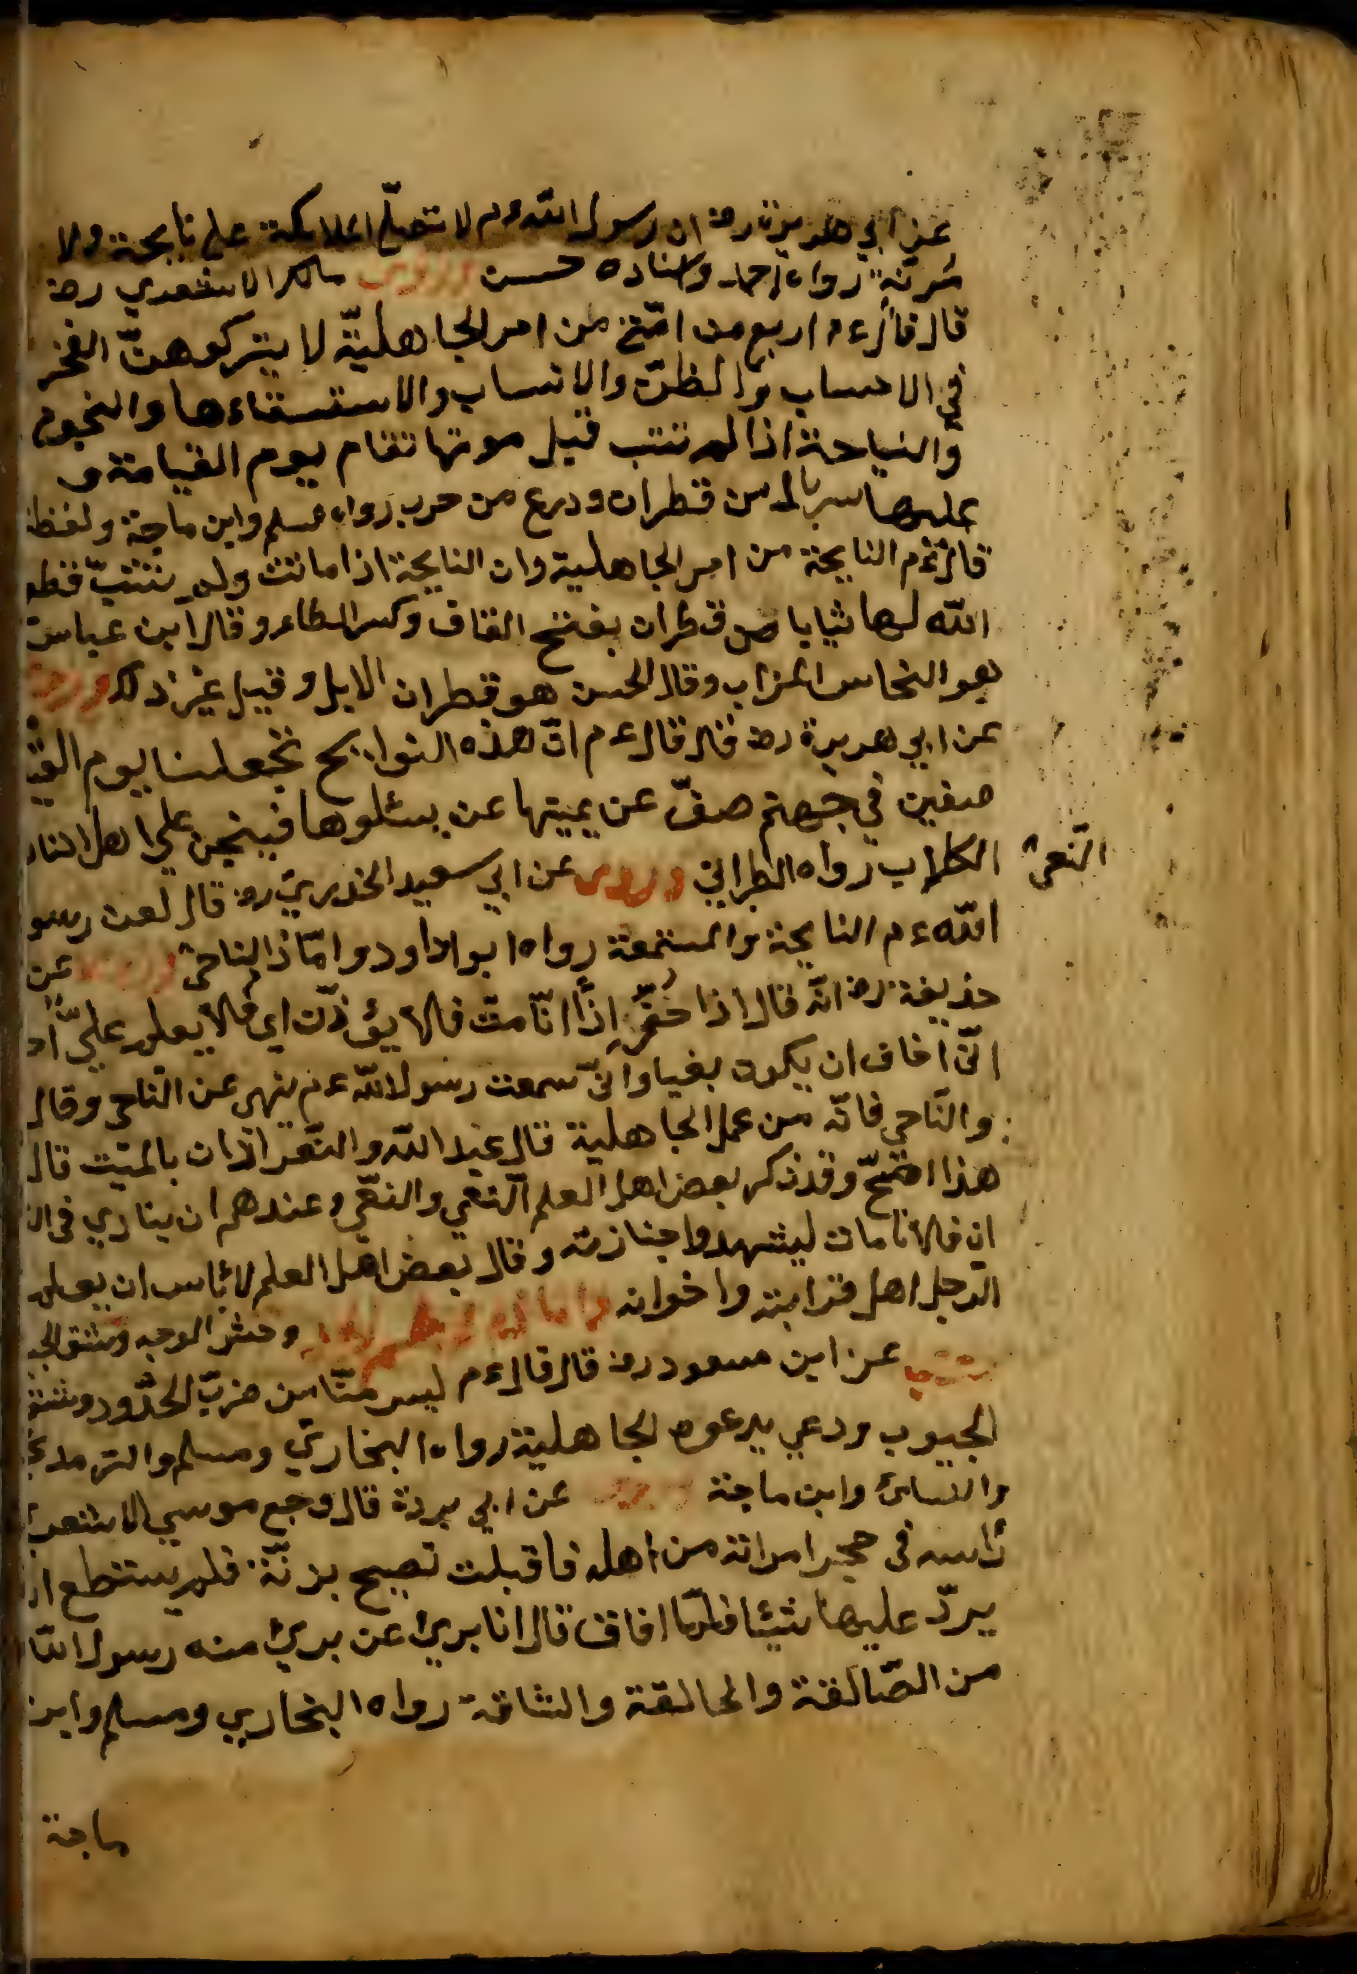 عن ابي هريرة رضه ان رسول الله ءم لا تصلّي الملائكة علي نايحة ولا
مُرنّة رواه احمد واسناده حسن وروي مالك الاشعدي رضه
قال قال ءم اربع من امّتي من امر الجاهليّة لا يتركوهنّ الفخر
في الاحساب والطّن والانساب والاستسقاءها والنجوم
والنياحة اذا لم تتب قبل موتها تقام يوم القيامة و
عليها سربال من قطران ودرع من حرب رواه مسلم وابن ماجة ولفظه
قال ءم النايحة من امر الجاهلية وان النايحة اذا ماتت ولم تتب قطع
الله لها ثيابا من قطران بفتح القاف وكسر الطاء وقال ابن عباس
هو النحاس المزاب وقال الحسن هو قطران الابل وقيل غير ذلك
عن ابي هريرة رضه قال قال ءم انّ هذه النوايح تجعلن يوم القي
صفين في جهنم صفّ عن يمينها عن يسلوها فينبحن علي اهل النار
الكلاب رواه الطبراني وروي عن ابي سعيد الخديري رضه قال لعن رسو
الله ءم النايحة والمستمعة رواه ابو داود وامّا الناحي وروي عن
حذيفة رضه انّه قال اذا حُضِّر اذًا انّا متّ فلا يؤذّن اي فلا يعلم عليّ اح
انّي اخاف ان يكون بغيا وانّي سمعت رسول الله ءم ينهي عن النّاحي وقال
والنّاحي فانّه من عمل الجاهلية قال عبد الله والنّعي اذان بالميّت قال
هذا اصحّ وقد ذكر بعض اهل العلم النّعي والنعي وعندهم ان ينادي في ال
ان فلانا مات ليشهدوا جنازته وقال بعض اهل العلم لا باس ان يعلم
الرجل اهل قرابته واخوانه وخمش الوجه وشق الج
عن ابن مسعود رضه قال قال ءم ليس منّا من ضرب الخدود وشق
الجيوب ودعي بدعوه الجاهلية رواه البخاريّ ومسلم والترمدي
والنسائ وابن ماجة عن ابي بردة قال وجع موسي الاشعري
رأسه في حجر امراتة من اهله فاقبلت تصيح برنّة فلم يستطع ان
يردّ عليها شيئا فلمّا افاق قال انا بريئ عن بريئ منه رسول الله
من الصّالقة والحالقة والشاقة رواه البخاري ومسلم وابن
ماجة
النّعي